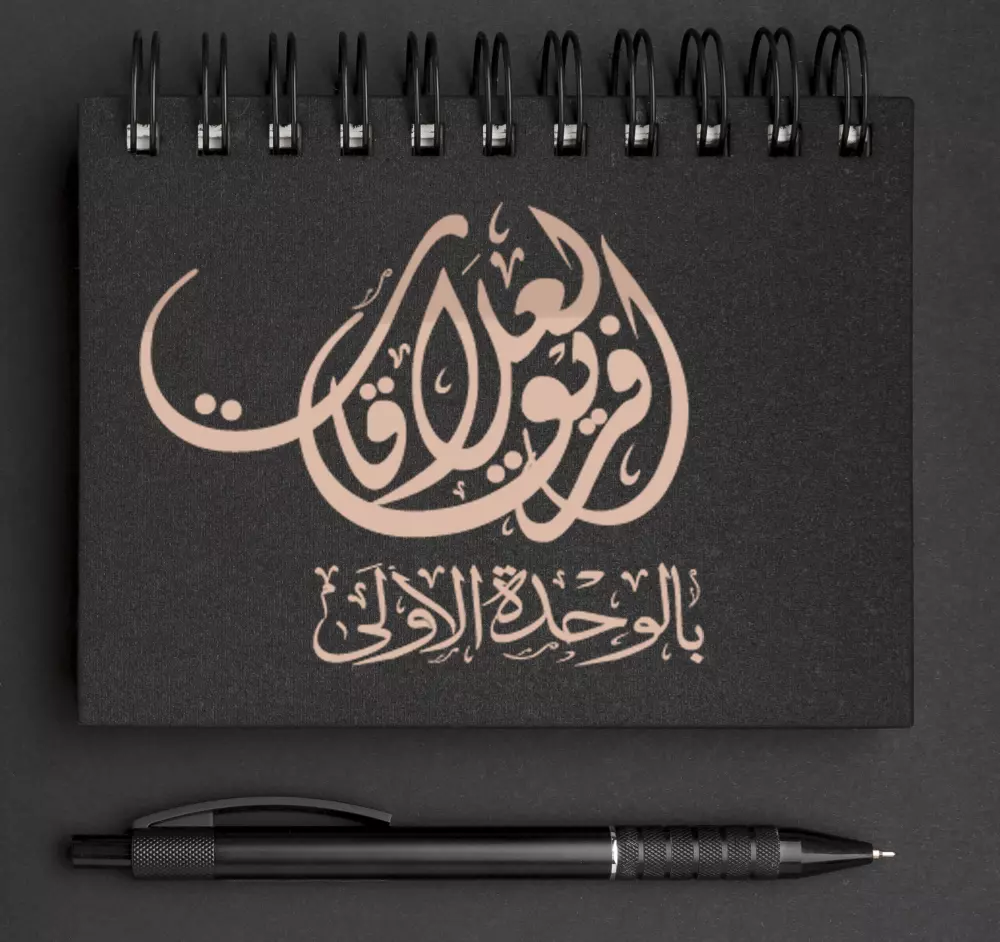 فريق العلاقات
بالوحدة الاولى